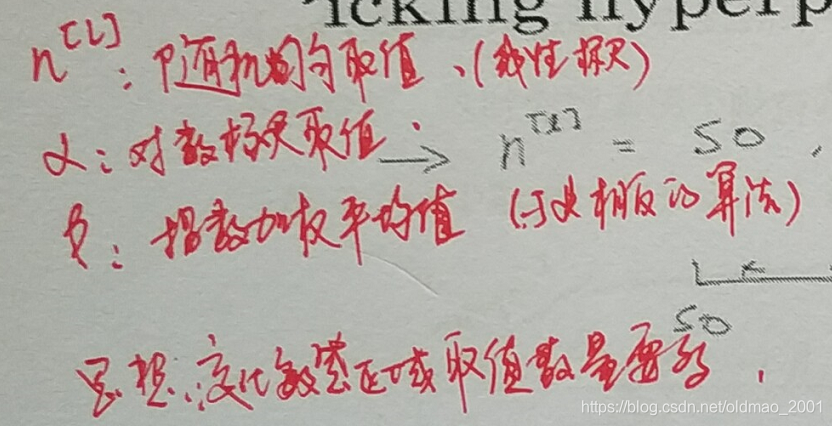 icking hyperp
n^[L]: 随机均匀取值、(线性标尺)
α: 对数标尺取值.
→ n^[l] = 50,
β: 指数加权平均值 (与α相反的算法)
50
思想: 变化敏感区域取值数量要多.
https://blog.csdn.net/oldmao_2001